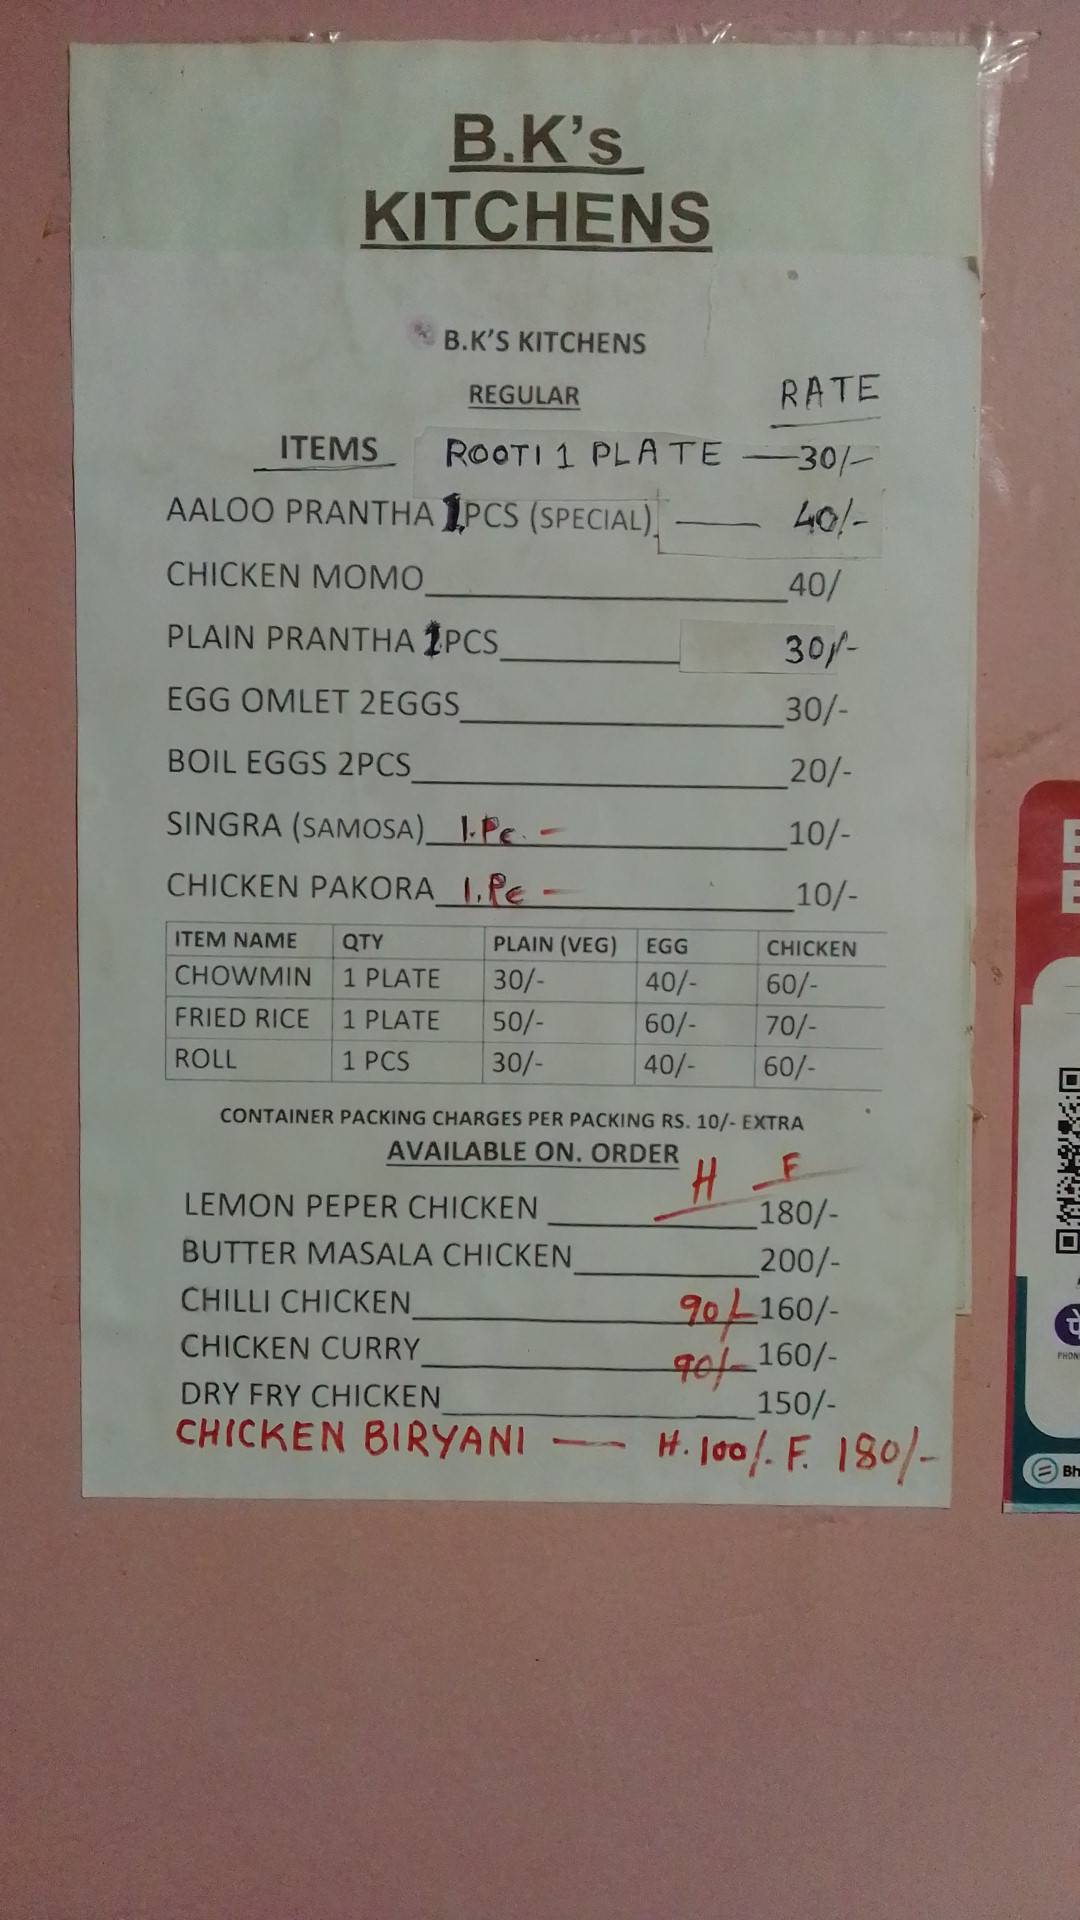 B.K's
KITCHENS
B.K'S KITCHENS
REGULAR RATE
ITEMS ROOTI 1 PLATE — 30/-
AALOO PRANTHA 1PCS (SPECIAL) — 40/-
CHICKEN MOMO 40/
PLAIN PRANTHA 1PCS 30/-
EGG OMLET 2EGGS 30/-
BOIL EGGS 2PCS 20/-
SINGRA (SAMOSA) 1.Pc. - 10/-
CHICKEN PAKORA 1.Pc - 10/-
ITEM NAME QTY PLAIN (VEG) EGG CHICKEN
CHOWMIN 1 PLATE 30/- 40/- 60/-
FRIED RICE 1 PLATE 50/- 60/- 70/-
ROLL 1 PCS 30/- 40/- 60/-
CONTAINER PACKING CHARGES PER PACKING RS. 10/- EXTRA
AVAILABLE ON. ORDER H F
LEMON PEPER CHICKEN 180/-
BUTTER MASALA CHICKEN 200/-
CHILLI CHICKEN 90/- 160/-
CHICKEN CURRY 90/- 160/-
DRY FRY CHICKEN 150/-
CHICKEN BIRYANI — H. 100/. F. 180/-